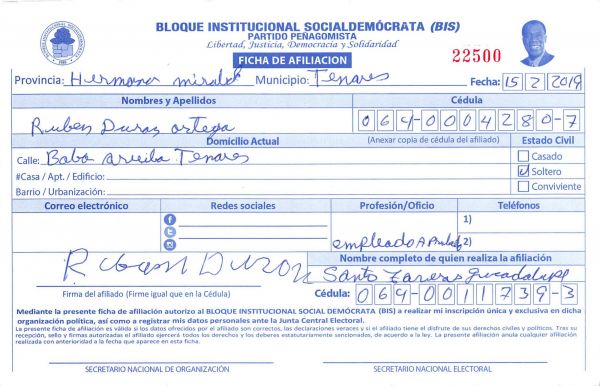 BLOQUE INSTITUCIONAL SOCIALDEMÓCRATA (BIS)
PARTIDO PEÑAGOMISTA
Libertad, Justicia, Democracia y Solidaridad
FICHA DE AFILIACION
22500
Provincia: Hermana mirabal Municipio: Tenares Fecha: 15 2 2019
Nombres y Apellidos Cédula
Ruben Duran ortega 064-0004280-7
Domicilio Actual (Anexar copia de cédula del afiliado) Estado Civil
Calle: Baba arriba Tenares Casado
#Casa / Apt. / Edificio: Soltero
Barrio / Urbanización: Conviviente
Correo electrónico Redes sociales Profesión/Oficio Teléfonos
1)
empleado A 2)
Ruben Duron
Nombre completo de quien realiza la afiliación
Santo Guadalupe
Firma del afiliado (Firme igual que en la Cédula) Cédula: 064-0011739-3
Mediante la presente ficha de afiliación autorizo al BLOQUE INSTITUCIONAL SOCIAL DEMÓCRATA (BIS) a realizar mi inscripción única y exclusiva en dicha
organización política, así como a registrar mis datos personales ante la Junta Central Electoral.
La presente ficha de afiliación es válida si los datos ofrecidos por el afiliado son correctos, las declaraciones veraces y si el afiliado tiene el disfrute de sus derechos civiles y políticos. Tras su
recepción, sello y firmas autorizadas el afiliado ejercerá todos los derechos y los deberes estatutariamente sancionados, de acuerdo a la ley. La presente afiliación anula cualquier afiliación
realizada con anterioridad a la fecha que aparece en esta ficha.
SECRETARIO NACIONAL DE ORGANIZACIÓN SECRETARIO NACIONAL ELECTORAL